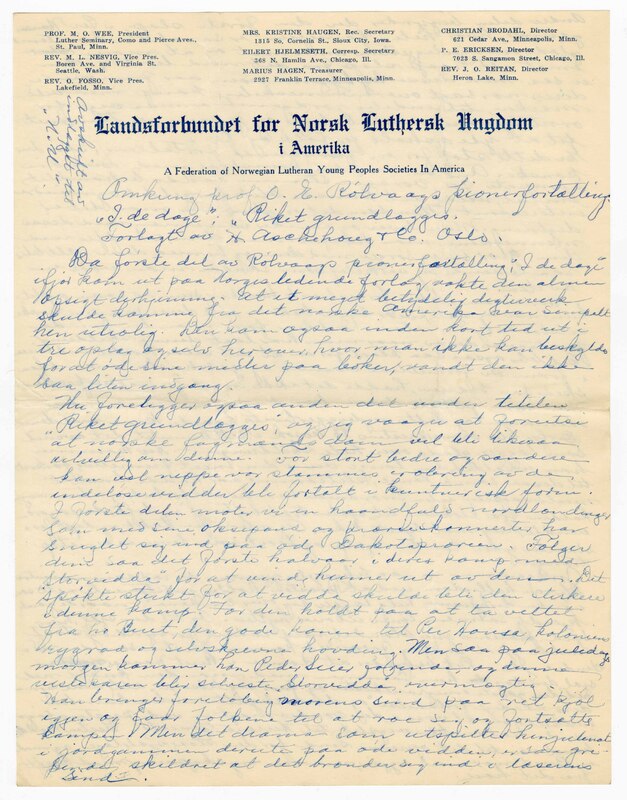 PROF. M. O. WEE, President
Luther Seminary, Como and Pierce Aves.,
St. Paul, Minn.
REV. M. L. NESVIG, Vice Pres.
Boren Ave. and Virginia St.
Seattle, Wash.
REV. O. FOSSO, Vice Pres.
Lakefield, Minn.
MRS. KRISTINE HAUGEN, Rec. Secretary
1315 So. Cornelia St., Sioux City, Iowa.
EILERT HJELMESETH, Corresp. Secretary
368 N. Hamlin Ave., Chicago, Ill.
MARIUS HAGEN, Treasurer
2927 Franklin Terrace, Minneapolis, Minn.
CHRISTIAN BRODAHL, Director
621 Cedar Ave., Minneapolis, Minn.
P. E. ERICKSEN, Director
7023 S. Sangamon Street, Chicago, Ill.
REV. J. O. REITAN, Director
Heron Lake, Minn.
Avskrift av
indlegg til
"N. U."
Landsforbundet for Norsk Luthersk Ungdom
i Amerika
A Federation of Norwegian Lutheran Young Peoples Societies In America
Omkring prof. O. E. Rölvaags pionerfortælling
"I de dage"; "Riket grundlægges.
Forlagt av H. Aschehoug & Co. Oslo.
Da første del av Rølvaags pionerfortælling, "I de dage"
ifjor kom ut paa Norges ledende forlag vakte den almen
At et meget betydelig digterverk
skulde komme fra det norske Amerika var simpelt
hen utrolig. Den kom ogsaa inden kort tid ut i
tre oplag og selv her over, hvor man ikke kan beskyldes
for at øde sine midler paa bøker, vandt den ikke
saa liten indgang.
Nu foreligger ogsaa anden del under titelen
"Riket grundlægges", og jeg vaager at forutsi
at norske dom vil bli likesaa
om denne. For stort bedre og sandere
kan vel neppe vor stammes erobring av de
endeløse vidder bli fortalt i kunstnerisk form.
I første delen møter vi en haandfuld nordlændinger
som med sine oksespand og har
sneglet sig ind paa øde Dakotaprærien. Følger
dem saa det første halvaar i deres kamp med
Storvidda for at vinde ut av den. Det
spøkte sterkt for at vidda skulde bli den sterkere
i denne kamp. For den holdt paa at ta vettet
fra ho Beret, den gode konen til Per Hansa, koloniens
rygrad og selvskrevne høvding. Men saa paa juledags
morgen kommer han Peder Seier og denne
Storvidda overmægtig.
Han bringer foreløbig morens sind paa ret kjøl
igjen og faar folkene til at roe sig og fortsætte
kampen. Men det drama som utspilles hin julenat
i jordgammen derute paa øde vidden, er saa gri-
pende skildret at det brænder sig ind i læserens
sind.